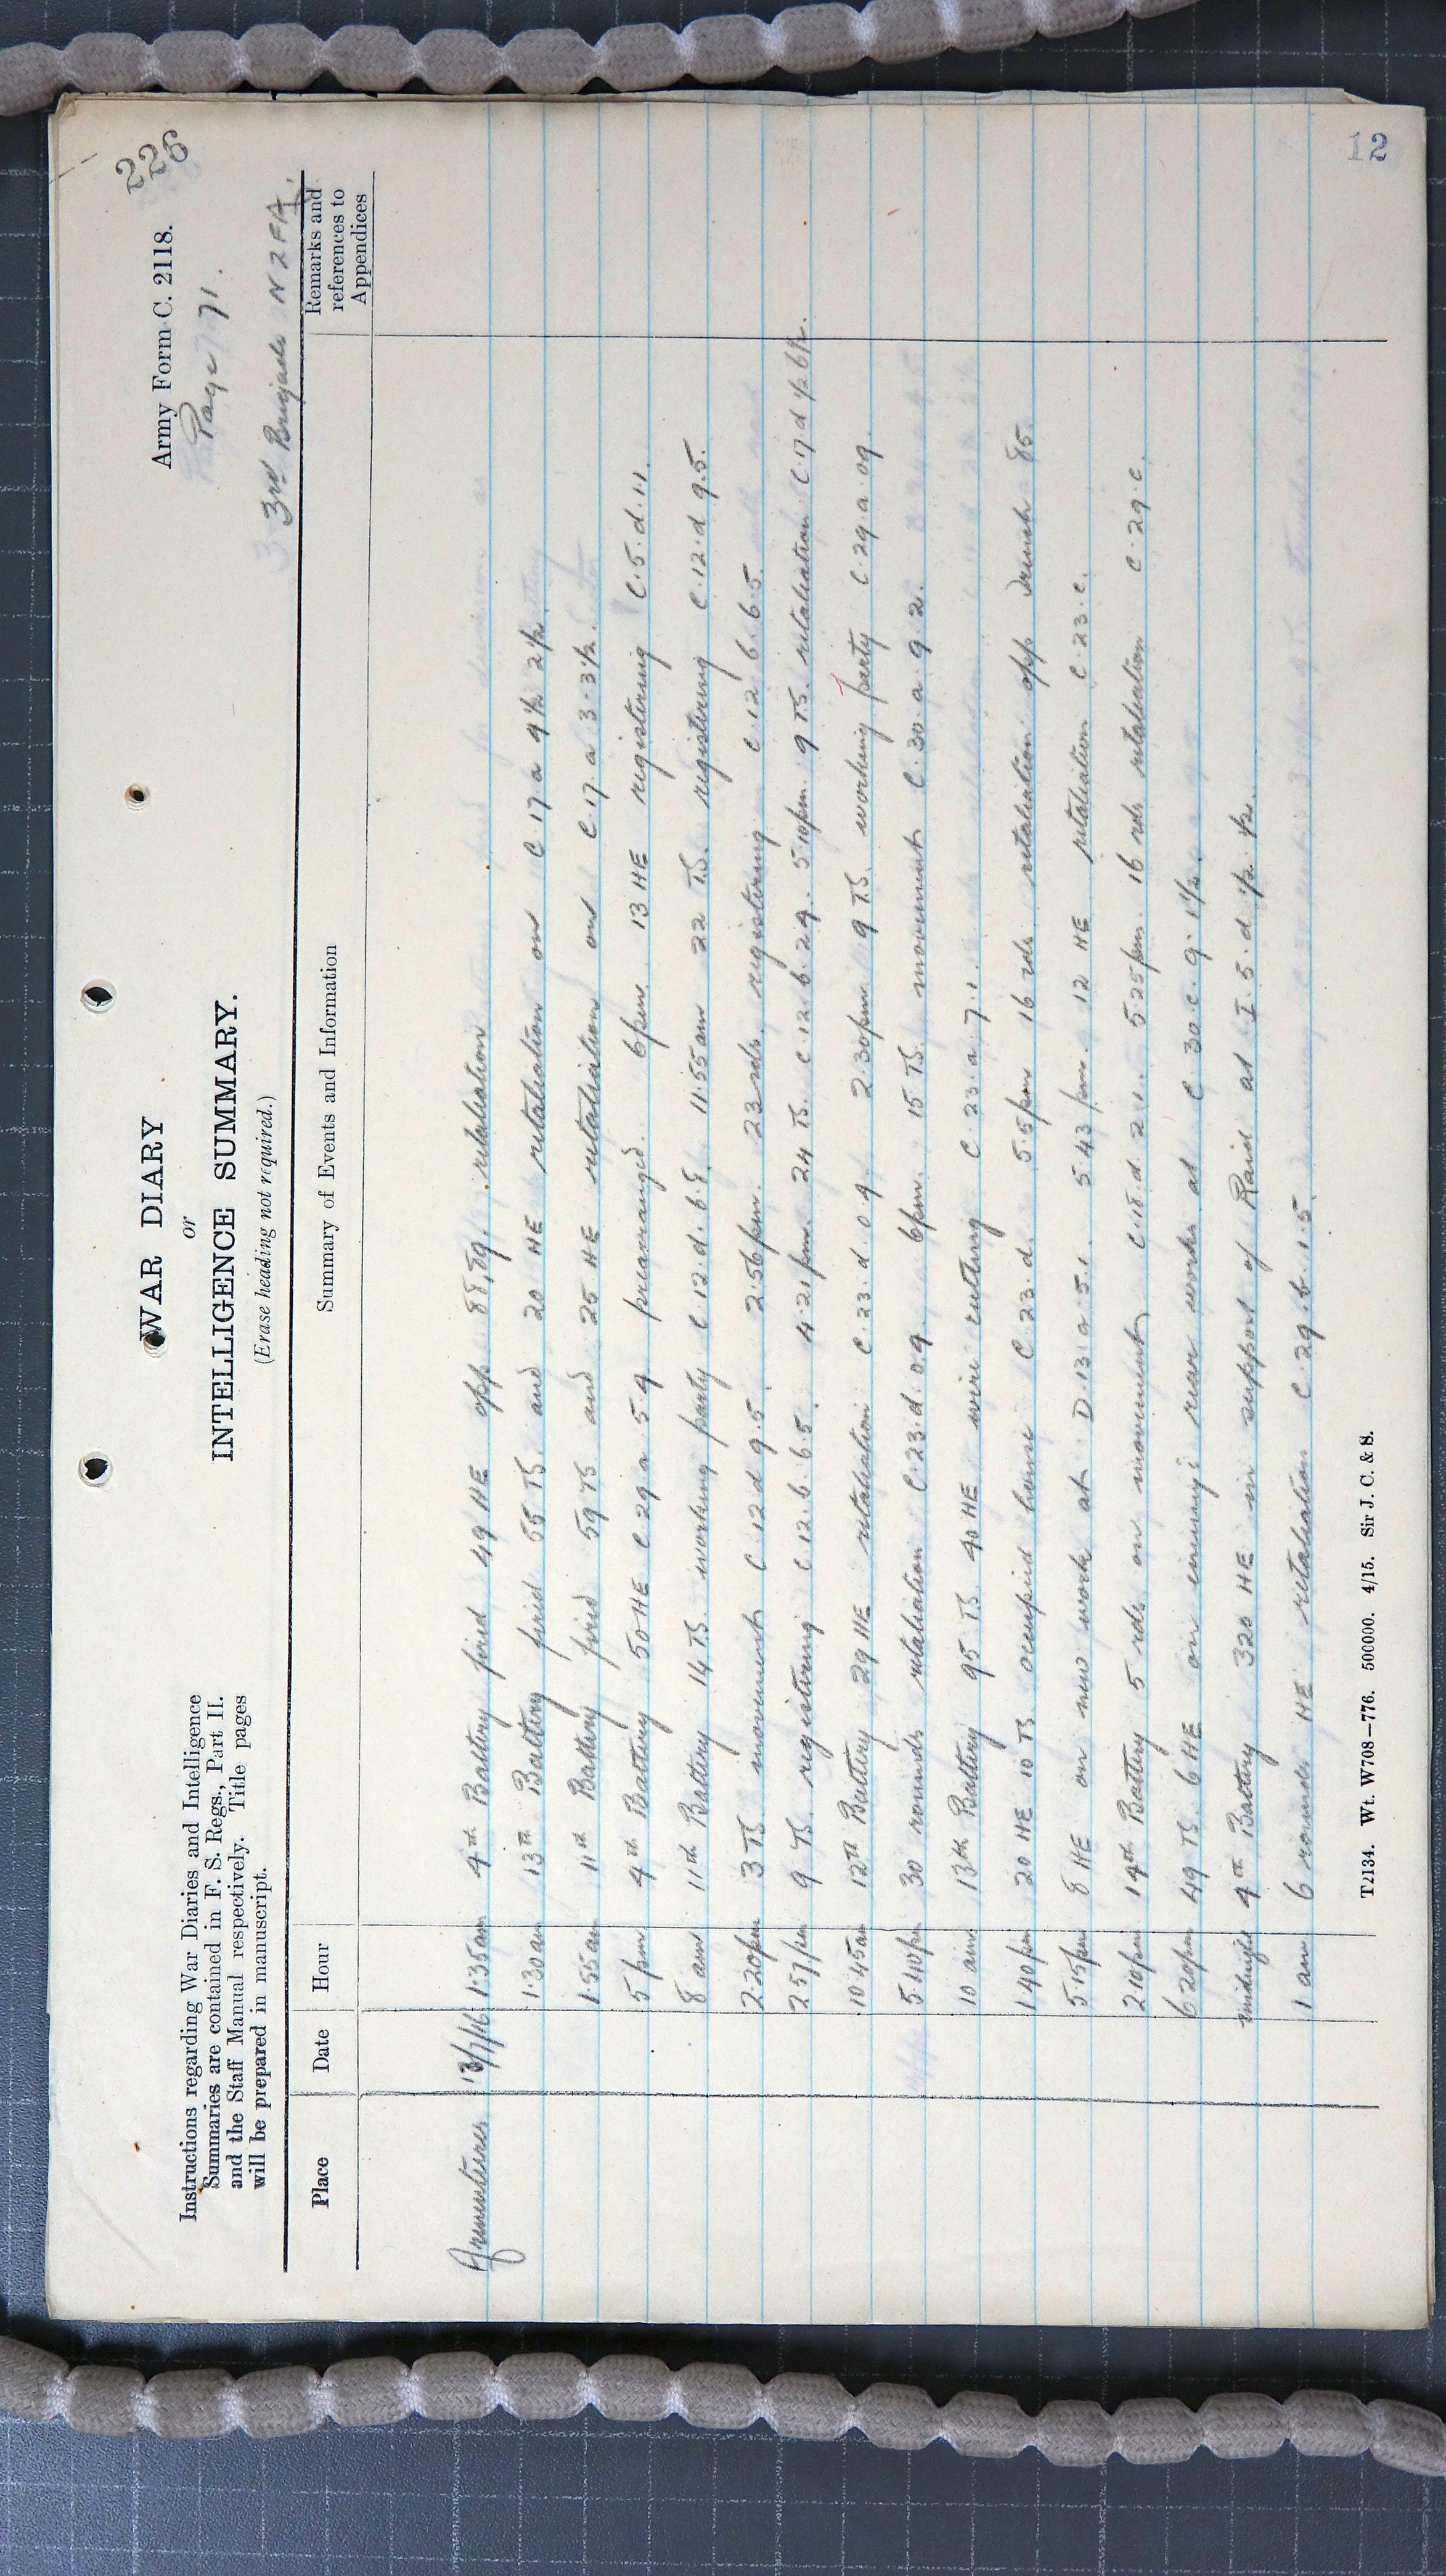 226
Army Form C. 2118.
Page 71.
3rd Brigade NZFA.
WAR DIARY
or
INTELLIGENCE SUMMARY.
(Erase heading not required.)
Instructions regarding War Diaries and Intelligence
Summaries are contained in F. S. Regs., Part II.
and the Staff Manual respectively. Title pages
will be prepared in manuscript.
Place Date Hour Summary of Events and Information Remarks and references to Appendices
Armentieres 13/7/16 1.35am 4th Battery fired 49 HE opp 88, 89. retaliation
1.30am 13th Battery fired 55 TS and 20 HE retaliation on C 17 a 4½ 2½.
1.55am 11th Battery fired 59 TS and 25 HE retaliation on C 17. a 3. 3½.
5 pm 4th Battery 50 HE C 29 a. 5 9 prearranged. 6pm. 13 HE registering C. 5. d. 1.1.
8 am 11th Battery 14 TS. working party C 12. d. 6.8. 11.55am 22 TS. registering C. 12. d 9.5.
2.20pm 3 TS movement C 12 d 9.5. 2.56pm. 23 rds. registering C. 12 b. 6.5.
2.57pm 9 TS. registering C 12. b. 6.5. 4.21pm. 24 TS. C. 12. b. 29. 5.10pm. 9 TS. retaliation C. 17. d ½ 6½.
10.45am 12th Battery 29 HE retaliation C. 23. d. 0.9. 2.30pm. 9 TS. working party C. 29. a. 09.
5.40pm 30 rounds retaliation C. 23. d. 0.9. 6pm. 15 TS. movement C. 30. a. 9. 2.
10 am 13th Battery 95 TS 40 HE wire cutting C. 23. a. 7. 1.
1.40pm 20 HE 10 TS occupied house C. 23. d. 5.5pm 16 rds. retaliation opp trench 85.
5.15pm 8 HE on new work at D. 13. a. 5.1. 5.43pm. 12 HE retaliation C. 23. c.
2.10pm 14th Battery 5 rds on movement C. 18. d. 2.1. 5.25pm. 16 rds retaliation C. 29. c.
6.20pm 49 TS. 6 HE on enemy's rear works at C 30. c. 9. 1½.
midnight 4th Battery 320 HE in support of Raid at I. 5. d ½. ½.
1 am 6 rounds HE retaliation C 29. b. 1. 5.
T2134. Wt. W708—776. 500000. 4/15. Sir J. C. & S.
12